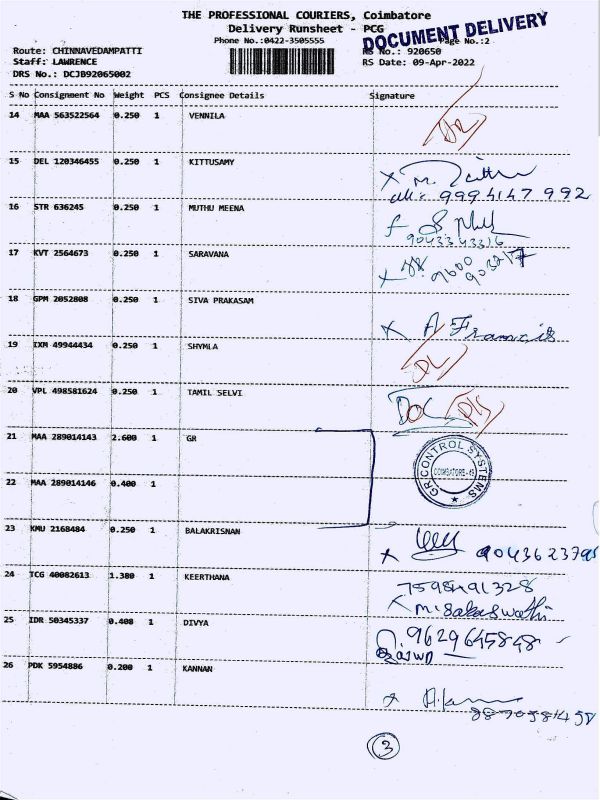 THE PROFESSIONAL COURIERS, Coimbatore
Delivery Runsheet - PCG
DOCUMENT DELIVERY
Phone No.:0422-3505555 Page No.:2
Route: CHINNAVEDAMPATTI RS No.: 920650
Staff: LAWRENCE RS Date: 09-Apr-2022
DRS No.: DCJB92065002
S No Consignment No Weight PCS Consignee Details Signature
14 MAA 563522564 0.250 1 VENNILA
15 DEL 120346455 0.250 1 KITTUSAMY
9994147992
16 STR 636245 0.250 1 MUTHU MEENA
9043343316
17 KVT 2564673 0.250 1 SARAVANA
9600
903217
18 GPM 2052808 0.250 1 SIVA PRAKASAM
A Francis
19 IXM 49944434 0.250 1 SHYMLA
DL
20 VPL 498581624 0.250 1 TAMIL SELVI
DOC
21 MAA 289014143 2.600 1 GR
GR CONTROL SYSTEMS
COIMBATORE-49
22 MAA 289014146 0.400 1
23 KMU 2168484 0.250 1 BALAKRISNAN
24 TCG 40082613 1.380 1 KEERTHANA
7598491328
25 IDR 50345337 0.408 1 DIVYA
9629645848
26 PDK 5954886 0.200 1 KANNAN
3